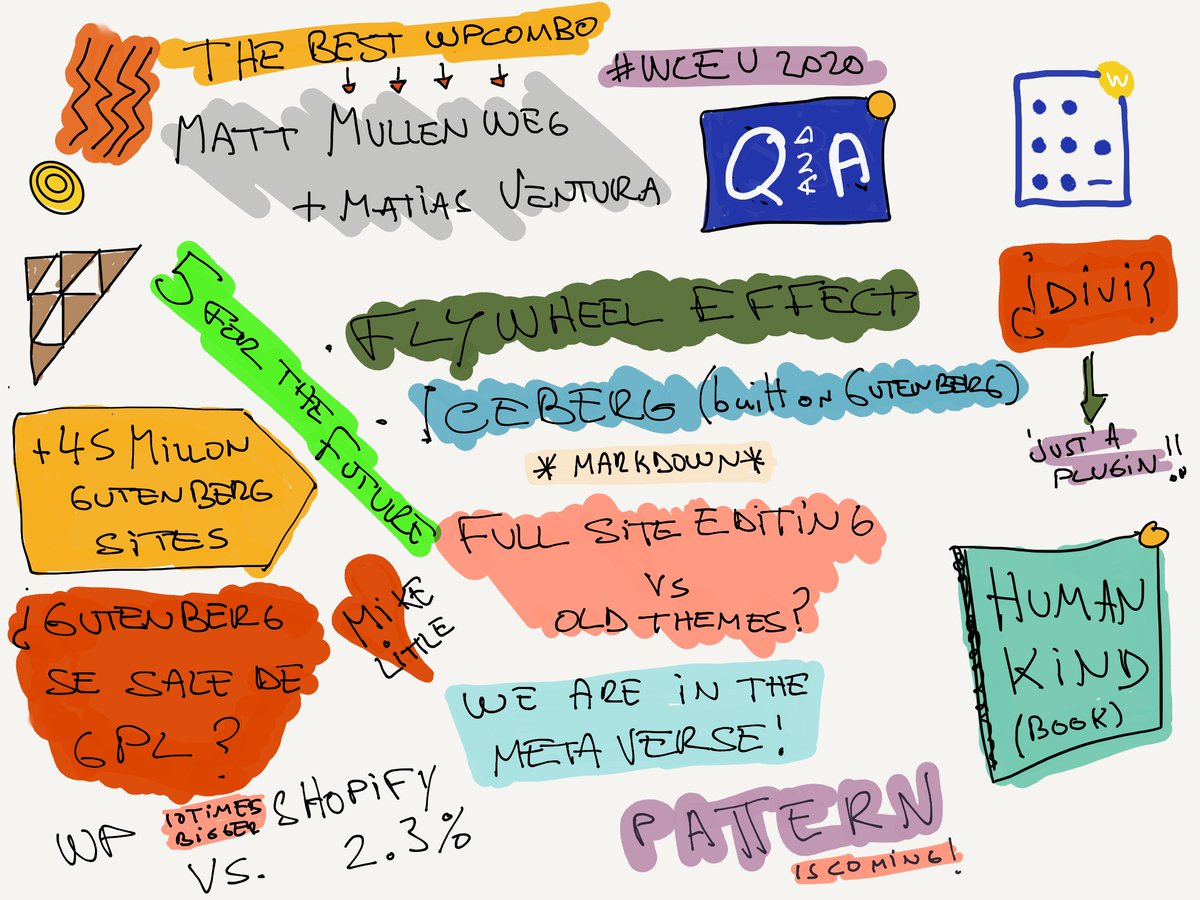 THE BEST WPCOMBO
#WCEU 2020
MATT MULLENWEG
+ MATIAS VENTURA
Q AND A
W
5 FOR THE FUTURE
. FLYWHEEL EFFECT
¿DIVI?
. ICEBERG (built on GUTENBERG)
* MARKDOWN *
'JUST' A
PLUGIN!!
+45 MILLON
GUTENBERG
SITES
FULL SITE EDITING
VS
OLD THEMES?
¿GUTENBERG
SE SALE DE
GPL?
MIKE
LITLE
HUMAN
KIND
(BOOK)
WE ARE IN THE
METAVERSE!
WP 10 TIMES
BIGGER
VS. SHOPIFY
2.3%
PATTERN
IS COMING!